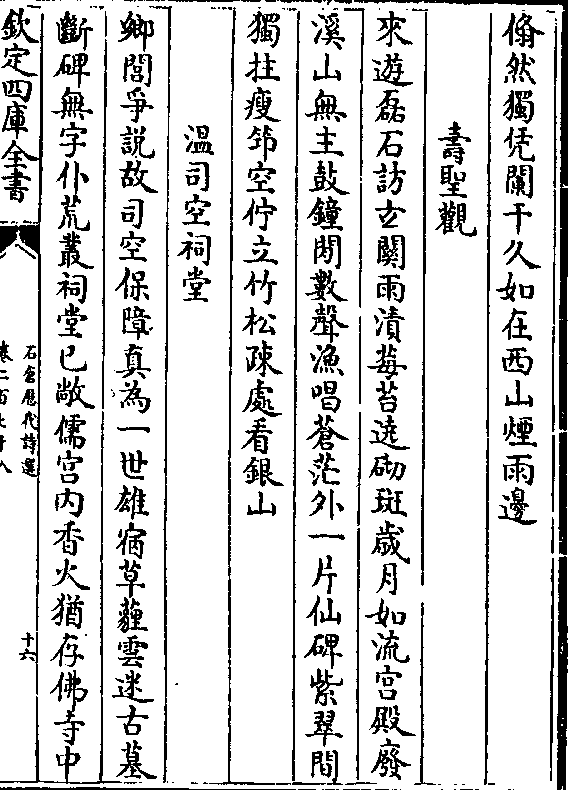 翛然獨凭闌干久如在西山煙雨邊
壽聖觀
來遊磊石訪玄關雨漬莓苔遶砌斑歲月如流宮殿廢
溪山無主鼓鐘閒數聲漁唱蒼茫外一片仙碑紫翠間
獨拄瘦筇空佇立竹松疎處看銀山
溫司空祠堂
鄉閭爭説故司空保障真為一世雄宿草蘿雲迷古墓
斷碑無字仆荒叢祠堂已敞儒宮内香火猶存佛寺中
欽定四庫全書
石倉歷代詩選
十六